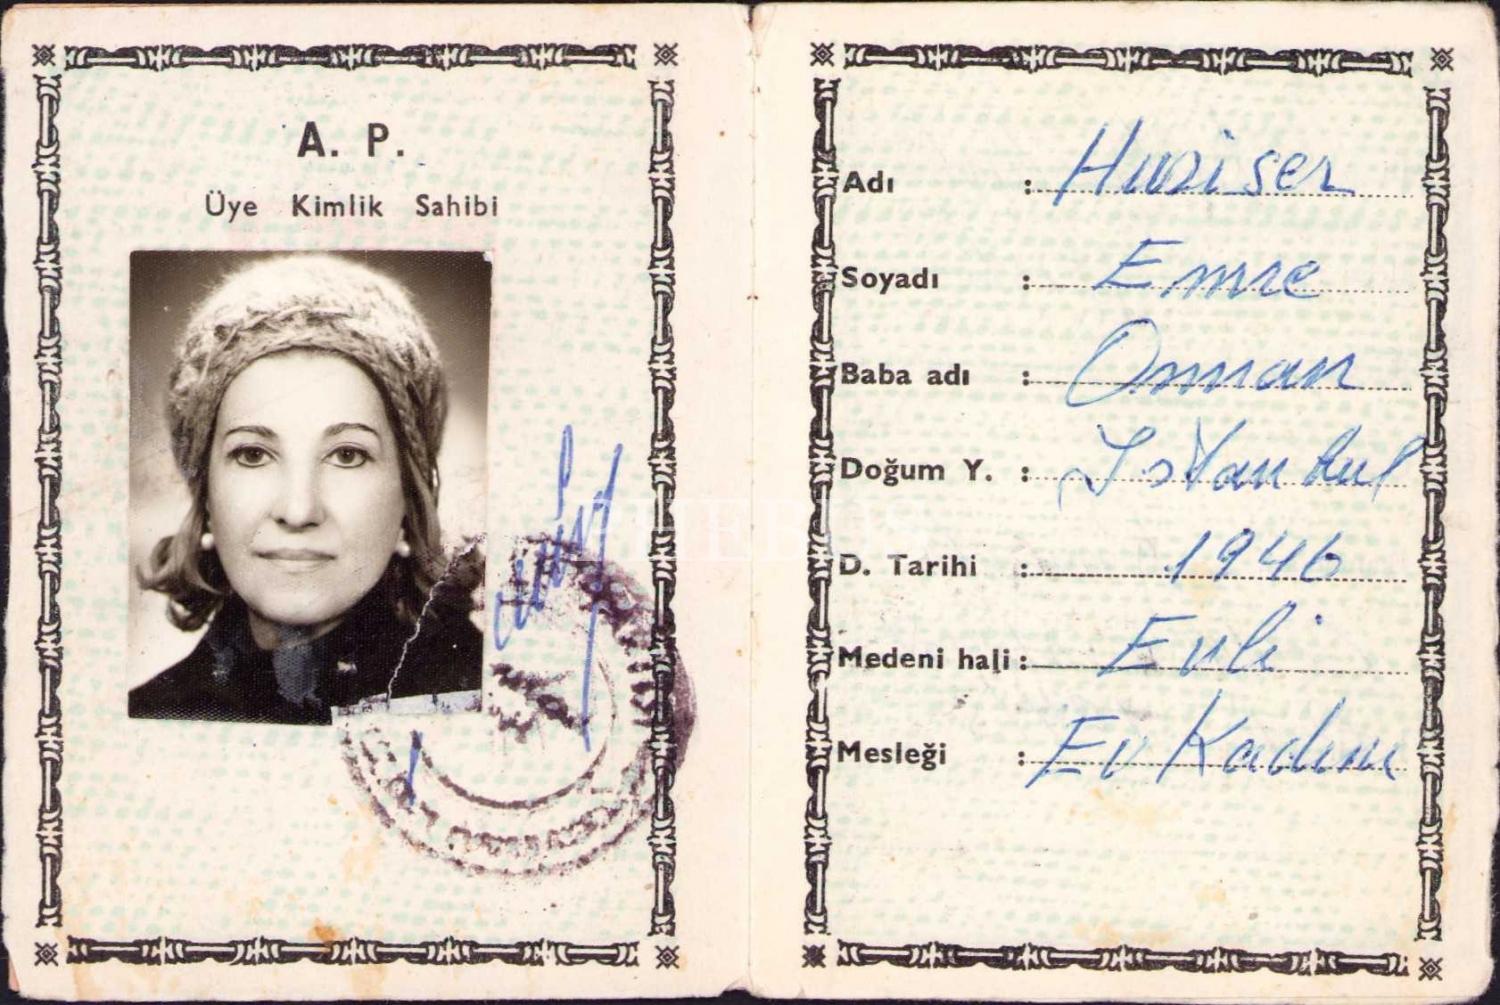 A. P.
Üye Kimlik Sahibi
Adı :
Soyadı : Emre
Baba adı : Osman
Doğum Y. : İstanbul
D. Tarihi : 1946
Medeni hali : Evli
Mesleği : Ev Kadını